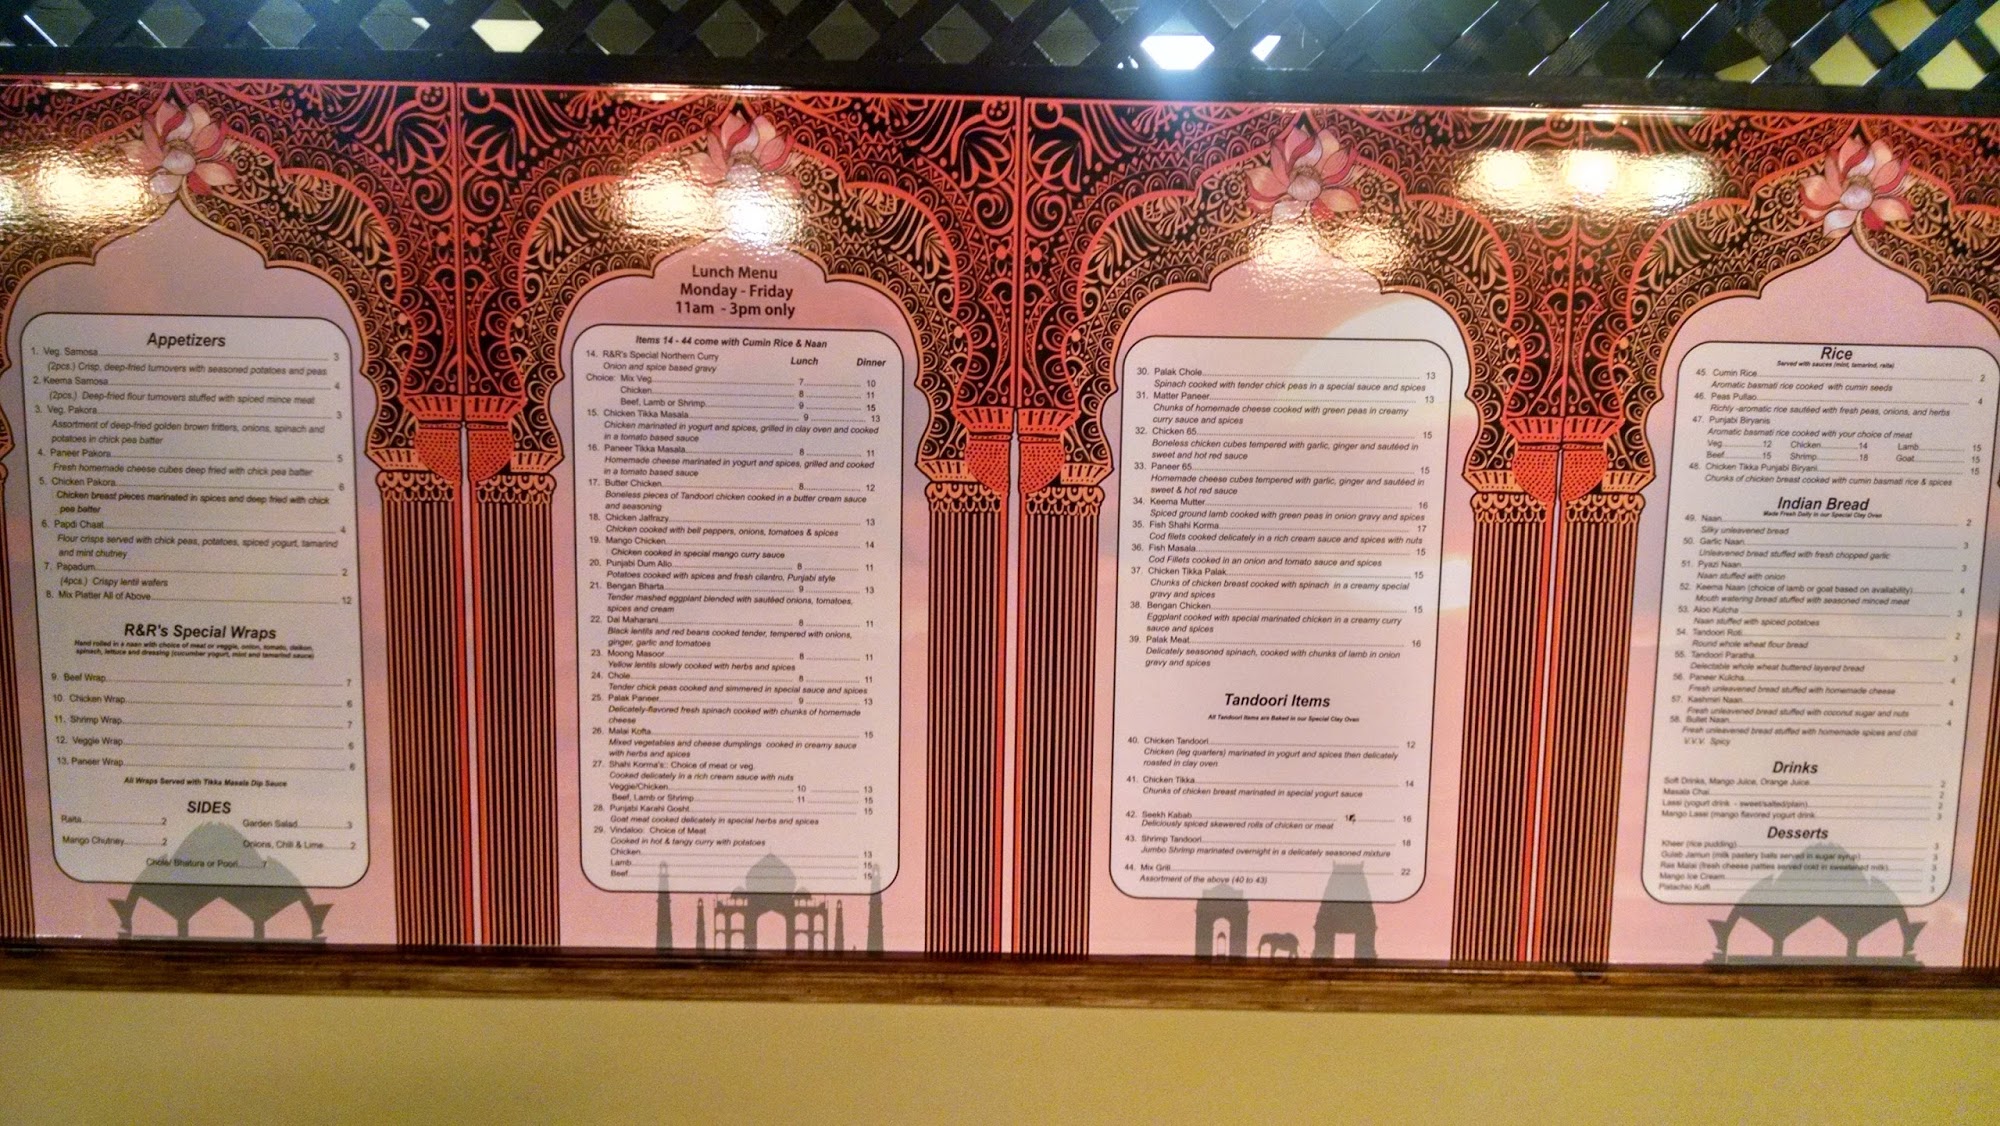 Appetizers
1. Veg. Samosa 3
(2pcs.) Crisp, deep-fried turnovers with seasoned potatoes and peas
2. Keema Samosa 4
(2pcs.) Deep-fried flour turnovers stuffed with spiced mince meat
3. Veg. Pakora 3
Assortment of deep-fried golden brown fritters, onions, spinach and
potatoes in chick pea batter
4. Paneer Pakora 5
Fresh homemade cheese cubes deep fried with chick pea batter
5. Chicken Pakora 6
Chicken breast pieces marinated in spices and deep fried with chick
pea batter
6. Papdi Chaat 4
Flour crisps served with chick peas, potatoes, spiced yogurt, tamarind
and mint chutney
7. Papadum 2
(4pcs.) Crispy lentil wafers
8. Mix Platter All of Above 12
R&R's Special Wraps
Hand rolled in a naan with choice of meat or veggie, onion, tomato, daikon,
spinach, lettuce and dressing (cucumber yogurt, mint and tamarind sauce)
9. Beef Wrap 7
10. Chicken Wrap 6
11. Shrimp Wrap 7
12. Veggie Wrap 6
13. Paneer Wrap 6
All Wraps Served with Tikka Masala Dip Sauce
SIDES
Raita 2 Garden Salad 3
Mango Chutney 2 Onions, Chili & Lime 2
Chole/ Bhatura or Poori 7
Lunch Menu
Monday - Friday
11am - 3pm only
Items 14 - 44 come with Cumin Rice & Naan
14. R&R's Special Northern Curry Lunch Dinner
Onion and spice based gravy
Choice: Mix Veg 7 10
Chicken 8 11
Beef, Lamb or Shrimp 9 15
15. Chicken Tikka Masala 9 13
Chicken marinated in yogurt and spices, grilled in clay oven and cooked
in a tomato based sauce
16. Paneer Tikka Masala 8 11
Homemade cheese marinated in yogurt and spices, grilled and cooked
in a tomato based sauce
17. Butter Chicken 8 12
Boneless pieces of Tandoori chicken cooked in a butter cream sauce
and seasoning
18. Chicken Jalfrazy 13
Chicken cooked with bell peppers, onions, tomatoes & spices
19. Mango Chicken 14
Chicken cooked in special mango curry sauce
20. Punjabi Dum Allo 8 11
Potatoes cooked with spices and fresh cilantro, Punjabi style
21. Bengan Bharta 9 13
Tender mashed eggplant blended with sautéed onions, tomatoes,
spices and cream
22. Dal Maharani 8 11
Black lentils and red beans cooked tender, tempered with onions,
ginger, garlic and tomatoes
23. Moong Masoor 8 11
Yellow lentils slowly cooked with herbs and spices
24. Chole 8 11
Tender chick peas cooked and simmered in special sauce and spices
25. Palak Paneer 9 13
Delicately-flavored fresh spinach cooked with chunks of homemade
cheese
26. Malai Kofta 15
Mixed vegetables and cheese dumplings cooked in creamy sauce
with herbs and spices
27. Shahi Korma's: Choice of meat or veg.
Cooked delicately in a rich cream sauce with nuts
Veggie/Chicken 10 13
Beef, Lamb or Shrimp 11 15
28. Punjabi Karahi Gosht 15
Goat meat cooked delicately in special herbs and spices
29. Vindaloo: Choice of Meat
Cooked in hot & tangy curry with potatoes
Chicken 13
Lamb 15
Beef 15
30. Palak Chole 13
Spinach cooked with tender chick peas in a special sauce and spices
31. Matter Paneer 13
Chunks of homemade cheese cooked with green peas in creamy
curry sauce and spices
32. Chicken 65 15
Boneless chicken cubes tempered with garlic, ginger and sautéed in
sweet and hot red sauce
33. Paneer 65 15
Homemade cheese cubes tempered with garlic, ginger and sautéed in
sweet & hot red sauce
34. Keema Mutter 16
Spiced ground lamb cooked with green peas in onion gravy and spices
35. Fish Shahi Korma 17
Cod filets cooked delicately in a rich cream sauce and spices with nuts
36. Fish Masala 15
Cod Fillets cooked in an onion and tomato sauce and spices
37. Chicken Tikka Palak 15
Chunks of chicken breast cooked with spinach in a creamy special
gravy and spices
38. Bengan Chicken 15
Eggplant cooked with special marinated chicken in a creamy curry
sauce and spices
39. Palak Meat 16
Delicately seasoned spinach, cooked with chunks of lamb in onion
gravy and spices
Tandoori Items
All Tandoori Items are Baked in our Special Clay Oven
40. Chicken Tandoori 12
Chicken (leg quarters) marinated in yogurt and spices then delicately
roasted in clay oven
41. Chicken Tikka 14
Chunks of chicken breast marinated in special yogurt sauce
42. Seekh Kabab 16
Deliciously spiced skewered rolls of chicken or meat
43. Shrimp Tandoori 18
Jumbo Shrimp marinated overnight in a delicately seasoned mixture
44. Mix Grill 22
Assortment of the above (40 to 43)
Rice
Served with sauces (mint, tamarind, raita)
45. Cumin Rice 2
Aromatic basmati rice cooked with cumin seeds
46. Peas Pullao 4
Richly -aromatic rice sautéed with fresh peas, onions, and herbs
47. Punjabi Biryanis
Aromatic basmati rice cooked with your choice of meat
Veg 12 Chicken 14 Lamb 15
Beef 15 Shrimp 18 Goat 15
48. Chicken Tikka Punjabi Biryani 15
Chunks of chicken breast cooked with cumin basmati rice & spices
Indian Bread
Made Fresh Daily in our Special Clay Oven
49. Naan 2
Silky unleavened bread
50. Garlic Naan 3
Unleavened bread stuffed with fresh chopped garlic
51. Pyazi Naan 3
Naan stuffed with onion
52. Keema Naan (choice of lamb or goat based on availability) 4
Mouth watering bread stuffed with seasoned minced meat
53. Aloo Kulcha 3
Naan stuffed with spiced potatoes
54. Tandoori Roti 2
Round whole wheat flour bread
55. Tandoori Paratha 3
Delectable whole wheat buttered layered bread
56. Paneer Kulcha 4
Fresh unleavened bread stuffed with homemade cheese
57. Kashmiri Naan 4
Fresh unleavened bread stuffed with coconut sugar and nuts
58. Bullet Naan 4
Fresh unleavened bread stuffed with homemade spices and chili
V.V.V. Spicy
Drinks
Soft Drinks, Mango Juice, Orange Juice 2
Masala Chai 2
Lassi (yogurt drink - sweet/salted/plain) 2
Mango Lassi (mango flavored yogurt drink 3
Desserts
Kheer (rice pudding) 3
Gulab Jamun (milk pastery balls served in sugar syrup) 3
Ras Malai (fresh cheese patties served cold in sweetened milk) 3
Mango Ice Cream 3
Pistachio Kulfi 3